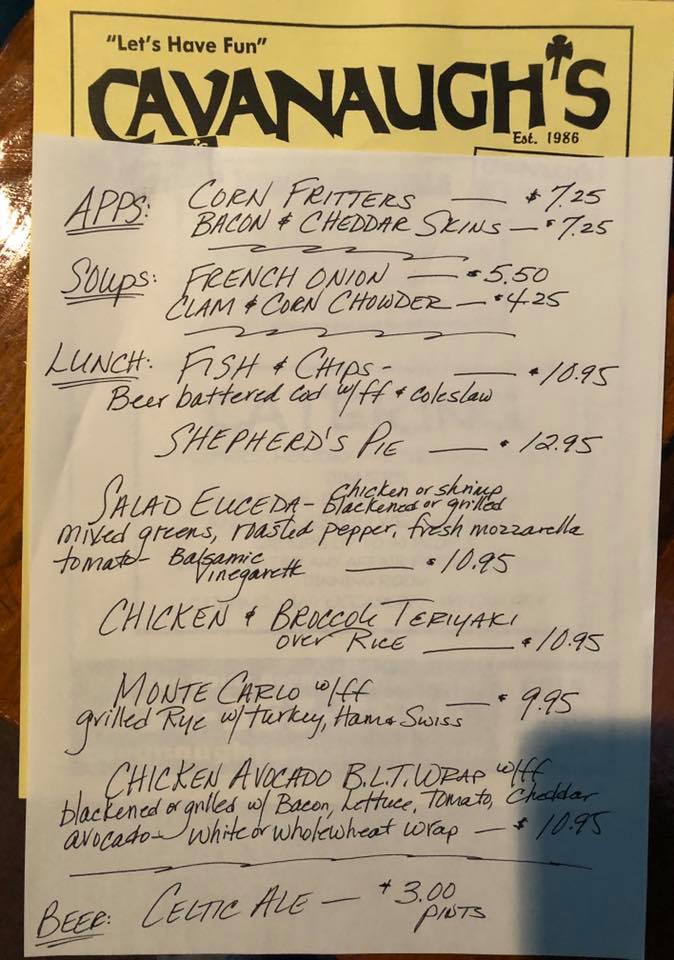 "Let's Have Fun"
CAVANAUGH'S
Est. 1986
APPS: CORN FRITTERS — $7.25
BACON & CHEDDAR SKINS — $7.25
SOUPS: FRENCH ONION — $5.50
CLAM & CORN CHOWDER — $4.25
LUNCH: FISH & CHIPS - — $10.95
Beer battered Cod w/ff & coleslaw
SHEPHERD'S PIE — $12.95
SALAD EUCEDA - chicken or shrimp
blackened or grilled
mixed greens, roasted pepper, fresh mozzarella
tomato - Balsamic
Vinegarett — $10.95
CHICKEN & BROCCOLI TERIYAKI
over RICE — $10.95
MONTE CARLO w/ff — $9.95
grilled Rye w/ turkey, Ham & Swiss
CHICKEN AVOCADO B.L.T. WRAP w/ff
blackened or grilled w/ Bacon, Lettuce, Tomato, Cheddar
avocado - white or wholewheat wrap — $10.95
BEER: CELTIC ALE — $3.00
PINTS